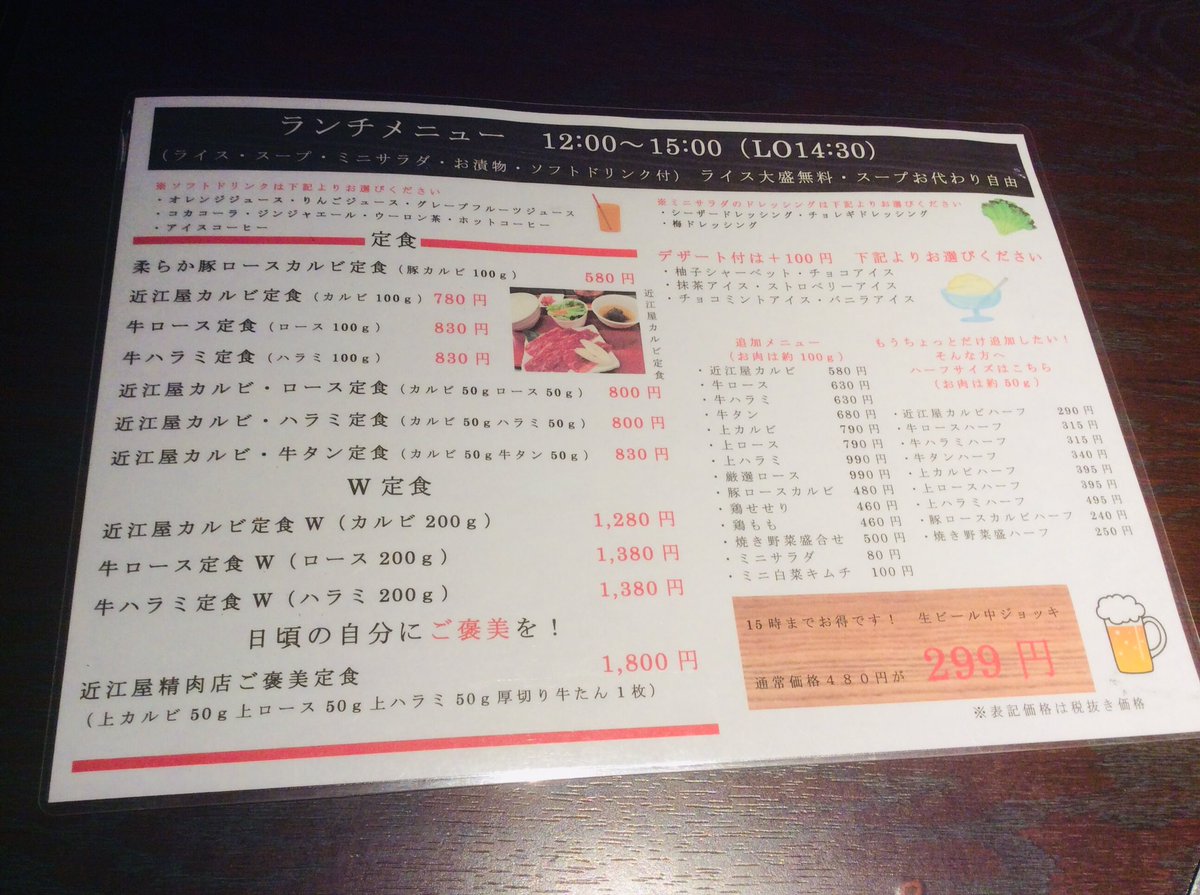 ランチメニュー 12:00～15:00（LO14:30）
（ライス・スープ・ミニサラダ・お漬物・ソフトドリンク付） ライス大盛無料・スープお代わり自由
※ソフトドリンクは下記よりお選びください
・オレンジジュース・りんごジュース・グレープフルーツジュース
・コカコーラ・ジンジャエール・ウーロン茶・ホットコーヒー
・アイスコーヒー
定食
柔らか豚ロースカルビ定食（豚カルビ100g） 580円
近江屋カルビ定食（カルビ100g）780円
牛ロース定食（ロース100g） 830円
牛ハラミ定食（ハラミ100g） 830円
近江屋カルビ定食
近江屋カルビ・ロース定食（カルビ50gロース50g） 800円
近江屋カルビ・ハラミ定食（カルビ50gハラミ50g） 800円
近江屋カルビ・牛タン定食（カルビ50g牛タン50g） 830円
W定食
近江屋カルビ定食W（カルビ200g） 1,280円
牛ロース定食W（ロース200g） 1,380円
牛ハラミ定食W（ハラミ200g） 1,380円
日頃の自分にご褒美を！
近江屋精肉店ご褒美定食 1,800円
（上カルビ50g上ロース50g上ハラミ50g厚切り牛たん1枚）
※ミニサラダのドレッシングは下記よりお選びください
・シーザードレッシング・チョレギドレッシング
・梅ドレッシング
デザート付は＋100円 下記よりお選びください
・柚子シャーベット・チョコアイス
・抹茶アイス・ストロベリーアイス
・チョコミントアイス・バニラアイス
追加メニュー
（お肉は約100g）
・近江屋カルビ 580円
・牛ロース 630円
・牛ハラミ 630円
・牛タン 680円
・上カルビ 790円
・上ロース 790円
・上ハラミ 990円
・厳選ロース 990円
・豚ロースカルビ 480円
・鶏せせり 460円
・鶏もも 460円
・焼き野菜盛合せ 500円
・ミニサラダ 80円
・ミニ白菜キムチ 100円
もうちょっとだけ追加したい！
そんな方へ
ハーフサイズはこちら
（お肉は約50g）
・近江屋カルビハーフ 290円
・牛ロースハーフ 315円
・牛ハラミハーフ 315円
・牛タンハーフ 340円
・上カルビハーフ 395円
・上ロースハーフ 395円
・上ハラミハーフ 495円
・豚ロースカルビハーフ 240円
・焼き野菜盛ハーフ 250円
15時までお得です！ 生ビール中ジョッキ
通常価格480円が 299円
※表記価格は税抜き価格